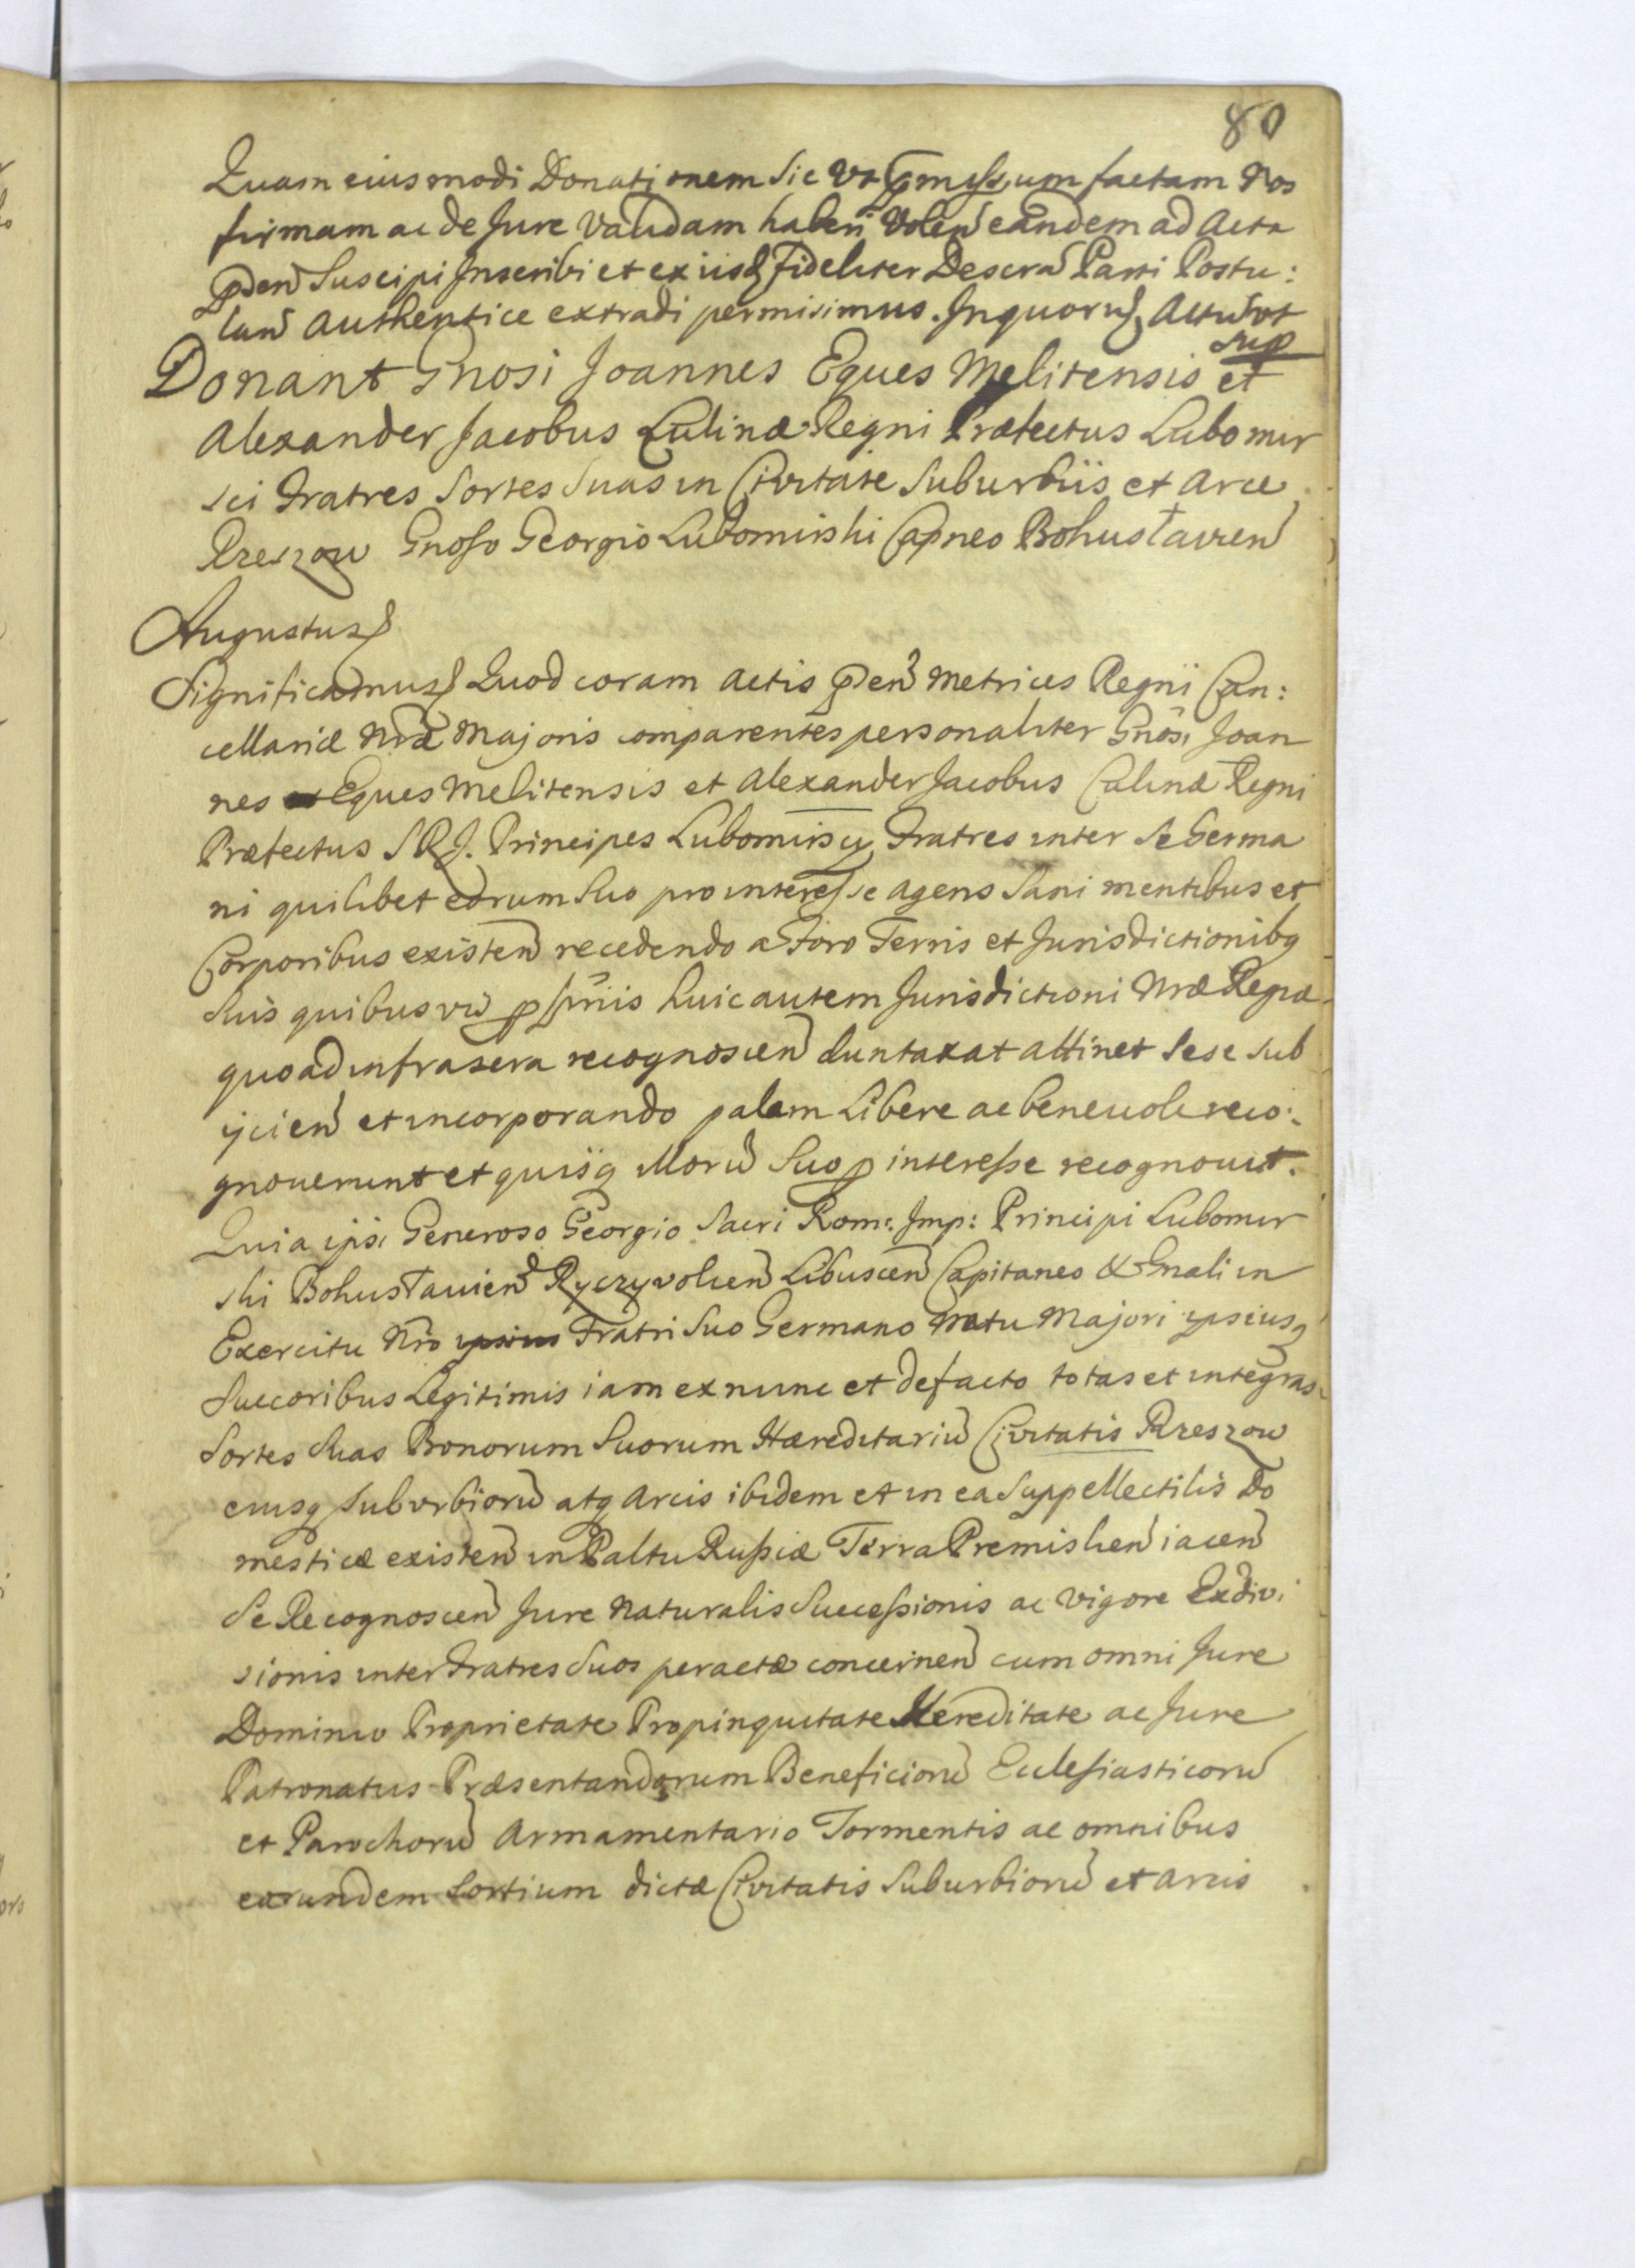 80
Quam eiusmodi Donationem Sic Vt pmissum factam Nos
firmam ac de Jure Validam haberi Volen eandem ad Acta
pden Suscipi Inscribi et ex iisd Fideliter Descra Parti Postu:
lan Authentice extradi permisimus. In quorum Actu vt
sup
Donant Gnosi Joannes Eques Melitensis et
Alexander Jacobus Culinæ Regni Præfectus Lubomir
sci Fratres Sortes Suas in Civitate Suburbiis et Arce
Rzeszow Gnoso Georgio Lubomirski Capneo Bohuslavien
Augustus
Significamus Quod coram Actis pden Metrices Regni Can:
cellariæ Nræ Majoris comparentes personaliter Gnosi Joan
nes Eques Melitensis et Alexander Jacobus Calinæ Regni
Præfectus S R J. Principes Lubomirscy Fratres inter Se Germa
ni quilibet eorum Suo pro interesse agens Sani mentibus et
Corporibus existen recedendo a Foro Terris et Jurisdictionibq
Suis quibusvis ppriis huic autem Jurisdictioni Nræ Regiæ
quoad infrascra recognoscen duntaxat attinet Sese Sub
ijcien et incorporando palam Libere ac benevole reco:
gnouerunt et quisq illoru Suo p interesse recognouit.
Quia ipsi Generoso Georgio Sacri Rom: Imp: Principi Lubomir
ski Bohuslauien Ryczyvolien Libuscen Capitaneo & Gnali in
Exercitu Nro ipsius Fratri Suo Germano Natu Majori ipsiusq
Succoribus Legitimis iam ex nunc et defacto totas et integras
Sortes Suas Bonorum Suorum Hæreditariu Civitatis Rzeszow
eiusq Suburbioru atq Arcis ibidem et in ea Suppellectilis Do
mesticæ existen in Paltu Russiæ Terra Premislien iacen
Se Recognoscen Jure Naturalis Successionis ac vigore Exdivi
sionis inter Fratres Suos peractæ concernen cum omni Jure
Dominio Proprietate Propinquitate Hereditate ac Jure
Patronatus Præsentandorum Beneficioru Ecclesiasticoru
et Parochoru Armamentario Tormentis ac omnibus
earundem Sortium dictæ Civitatis Suburbioru et Arcis